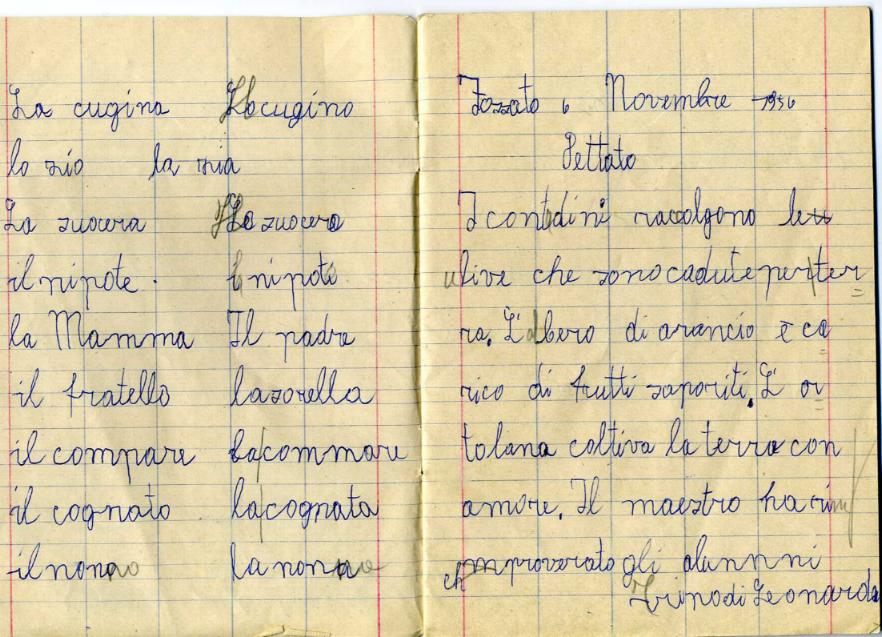 La cugina Il cugino
lo zio la zia
La suocera Il suocero
il nipote. I nipoti
la Mamma Il padre
il fratello la sorella
il compare la commare
il cognato la cognata
il nonno la nonna
Fossato 6 Novembre 1956
Dettato
I contadini raccolgono le
ulive che sono cadute per ter
ra. L'albero di arancio è ca
rico di frutti saporiti. L' or
tolana coltiva la terra con
amore. Il maestro ha rim
proverato gli alunnni